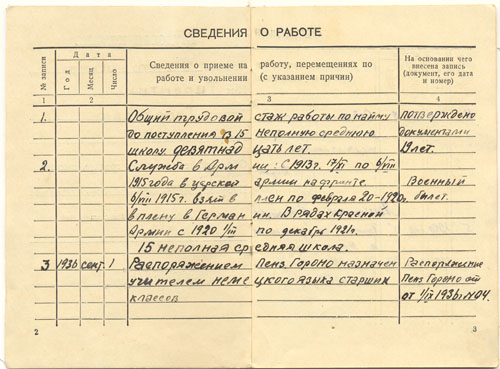 СВЕДЕНИЯ О РАБОТЕ
№ записи
Дата
Год
Месяц
Число
Сведения о приеме на работу, перемещениях по
работе и увольнении (с указанием причин)
На основании чего
внесена запись
(документ, его дата
и номер)
1 2 3 4
1. Общий трудовой стаж работы по найму потверждено
до поступления в 15 Неполную среднюю документами
школу девятнадцать лет. 19 лет.
2. Служба в Армии: С 1913г. по
1915 года в царской армии на фронте Военный
1915 г. взят в плен по февраль 20-1920г. билет.
в плену в Германии. В рядах Красной
Армии с 1920 по декабрь 1921г.
15 неполная средняя школа.
3 1936 сент. 1 Распоряжением Пенз. Гороно назначен Распоряжение
учителем немецкого языка старших Пенз Гороно от
классов от 1/IX 1936г. №04.
2 3